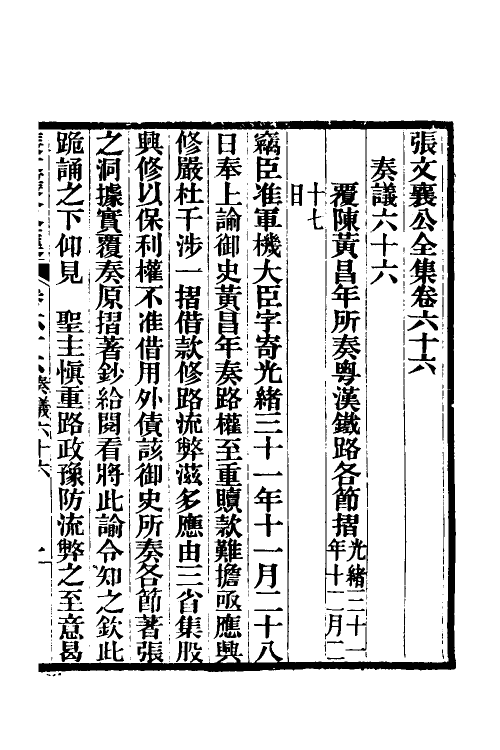 張文襄公全集卷六十六
奏議六十六
覆陳黃昌年所奏粵漢鐵路各節摺光緒三十一年十二月二
十七
日
竊臣准軍機大臣字寄光緒三十一年十一月二十八
日奉上諭御史黃昌年奏路權至重贖款難擔亟應興
修嚴杜干涉一摺借款修路流弊滋多應由三省集股
興修以保利權不准借用外債該御史所奏各節著張
之洞據實覆奏原摺著鈔給閱看將此諭令知之欽此
跪誦之下仰見　聖主慎重路政豫防流弊之至意曷
奏議六十六　一